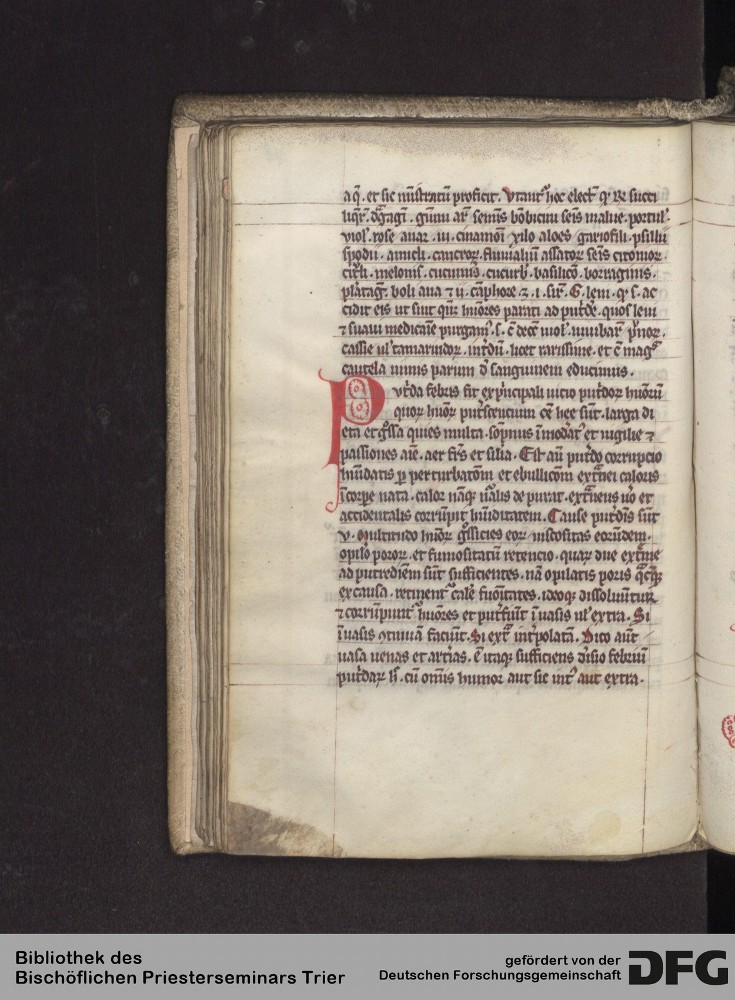 aq̄. et sic mīstratū proficit. Vtant᷑ hoc elect̄ qd̓ R̷ succi
liq̄r̄. dͣgagū. gūmi ar̄. semīs bōbicini seīs malue. portul᷑.
viol᷑. rose anaʒ. iii. cinamōi xilo aloes gariofili. psillii
spodii. amidi. cancroꝝ. fluuialiū assatoꝝ seīs citonioꝝ.
citͥli. melonis. cucumīs. cucurb̄. basilicō. borraginis.
plātaḡ. boli ana ʒ ii. cāphore. ʒ. i. sir̄.
cidit eis ut sint q̄si hūores parati ad put̓de. quos leui
⁊ suaui medicaīe purgam᷒. s. ē decē viol᷑. mirabar̄
cassie ul᷑ tamarindoꝝ. int̓dū. licet rarissime. et cū magͣ
cautela nimis parum d̓ sanguinem educimus.
Put̓da febris fit ex p̓ncipali uicio put̓doꝝ hūorū
quoꝝ hūoꝝ put̓scentium cē hee sūt. larga di
eta et gͦssa quies multa. sōpnus īmod̓at᷒ et uigilie ⁊
passiones aīe. aer fͥg̓s et silia. Est aū put̓do corrupcio
hūiditatis ꝑ perturbatōm et ebullicōm extͣnei caloris
ī corꝑe nata. calor nāq̨ nͣalis depurat. extͣneus u̓o et
accidentalis corrūpit hūiditatem. Cause put̓dīs sūt
v. multitudo hūoꝝ gͦssicies eoꝝ uiscositas eorūdem.
opilō poroꝝ. et fumositatū retencio. quaꝝ due extͣme
ad putrediēm sūt sufficientes. nā opilatis poris qͣcūq̨
ex causa. retinent᷑ cale fūoītates. ideoq̨ dissoluūtur
⁊ corrūpunt᷑ hūores et put̓fiūt ī uasis ul᷑ extra. Si
ī uasis ꝯtinuā faciūt. Si extͣ int̓polatā. Dico aūt
uasa uenas et art̓ias. ē itaq̨ sufficiens d̓isio febriū
put̓daꝝ h̄. cū omīs humor aut sic int᷑ aut extra.
Bibliothek des
Bischöflichen Priesterseminars Trier
gefördert von der
Deutschen Forschungsgemeinschaft
DFG